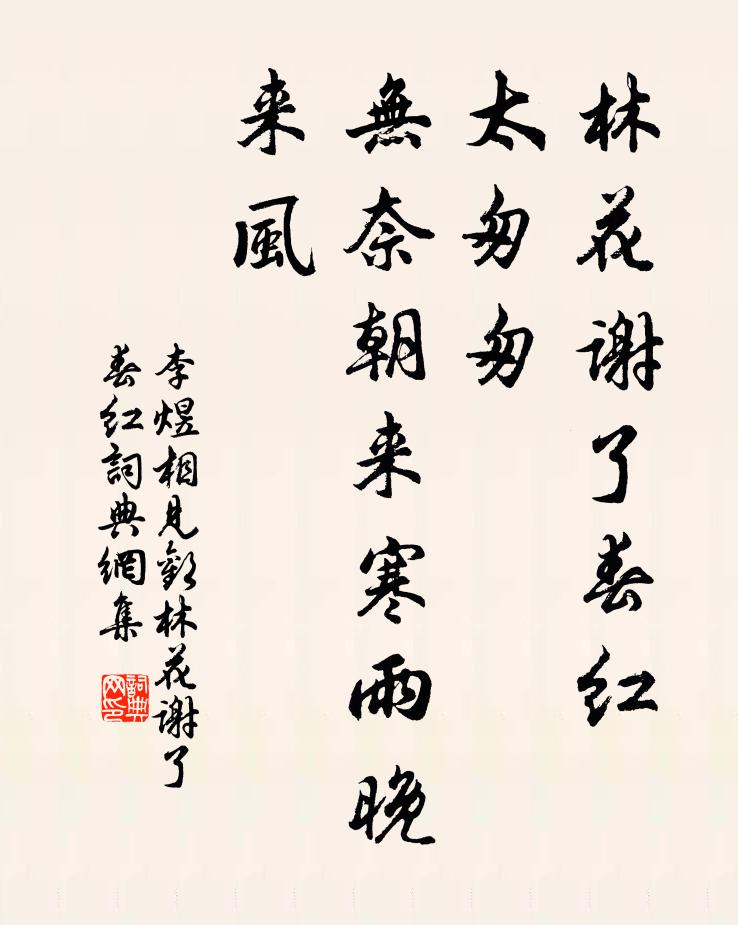 林花謝了春红
太匆匆
無奈朝来寒雨晚
来風
李煜相見歡林花謝了
春红詞典網集
詞典
网印